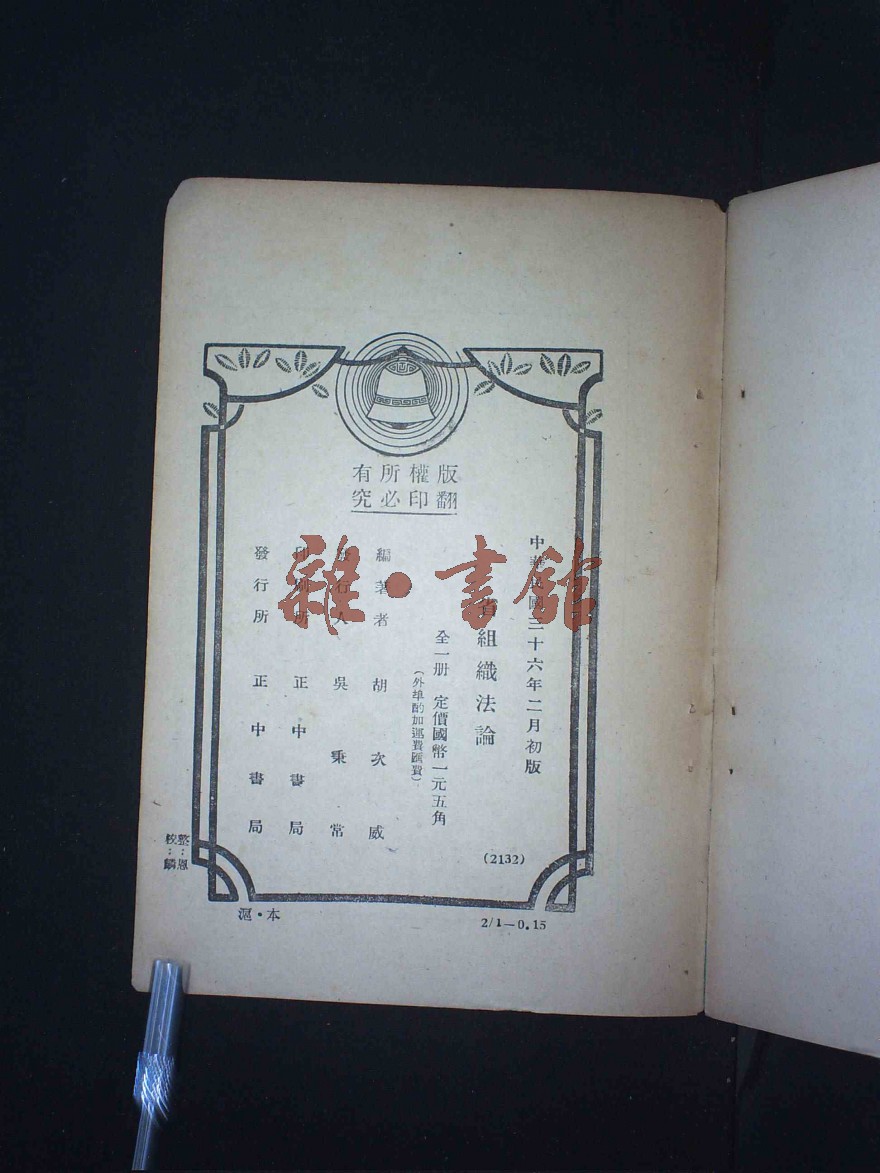 版權所有
翻印必究
中華民國三十六年二月初版
省組織法論
全一册 定價國幣一元五角
(外埠酌加運費匯費)
編著者 胡次威
發行人 吳秉常
印刷所 正中書局
發行所 正中書局
(2132)
整:恩
校:麟
滬·本
2/1—0.15
雜·書館